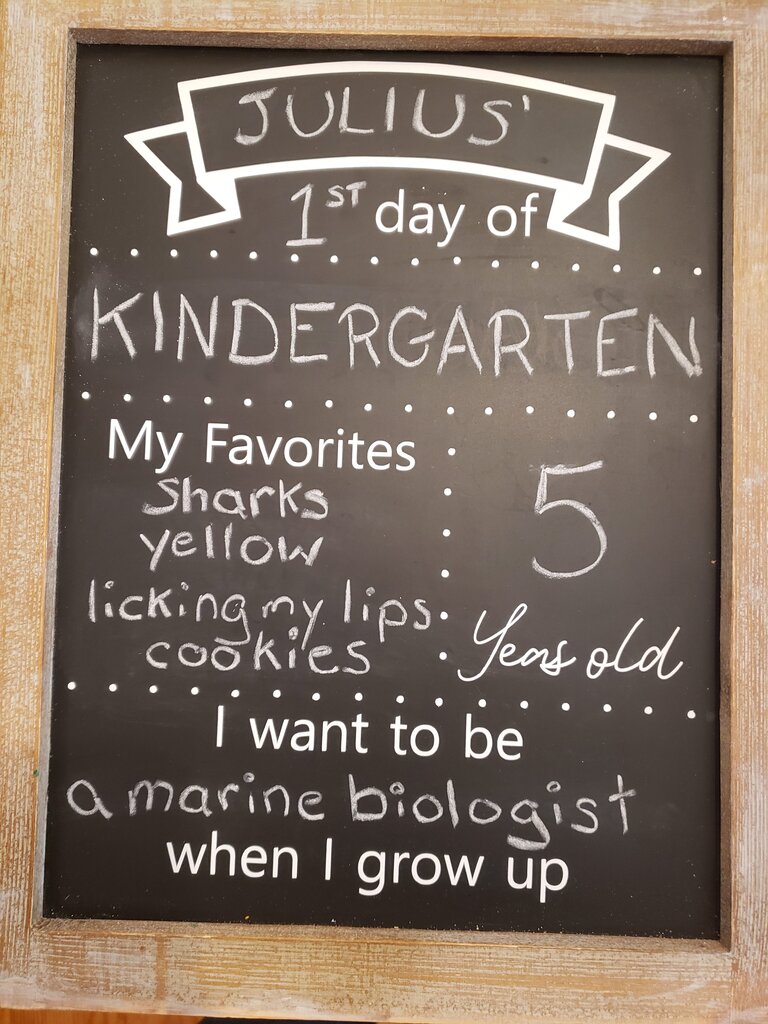 JULIUS'
1ST day of
KINDERGARTEN
My Favorites
Sharks
yellow
licking my lips
cookies
5
Yeas old
I want to be
a marine biologist
when I grow up